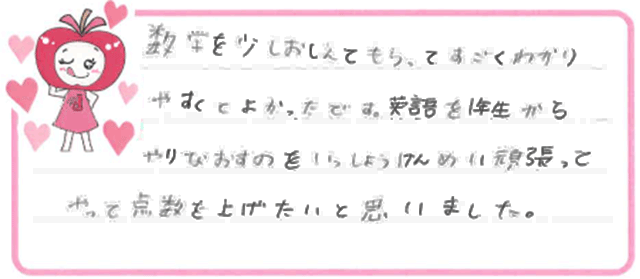 数学を少しおしえてもらってすごくわかり
やすくてよかったです。英語を1年生から
やりなおすのをいっしょうけんめい頑張って
やって点数を上げたいと思いました。